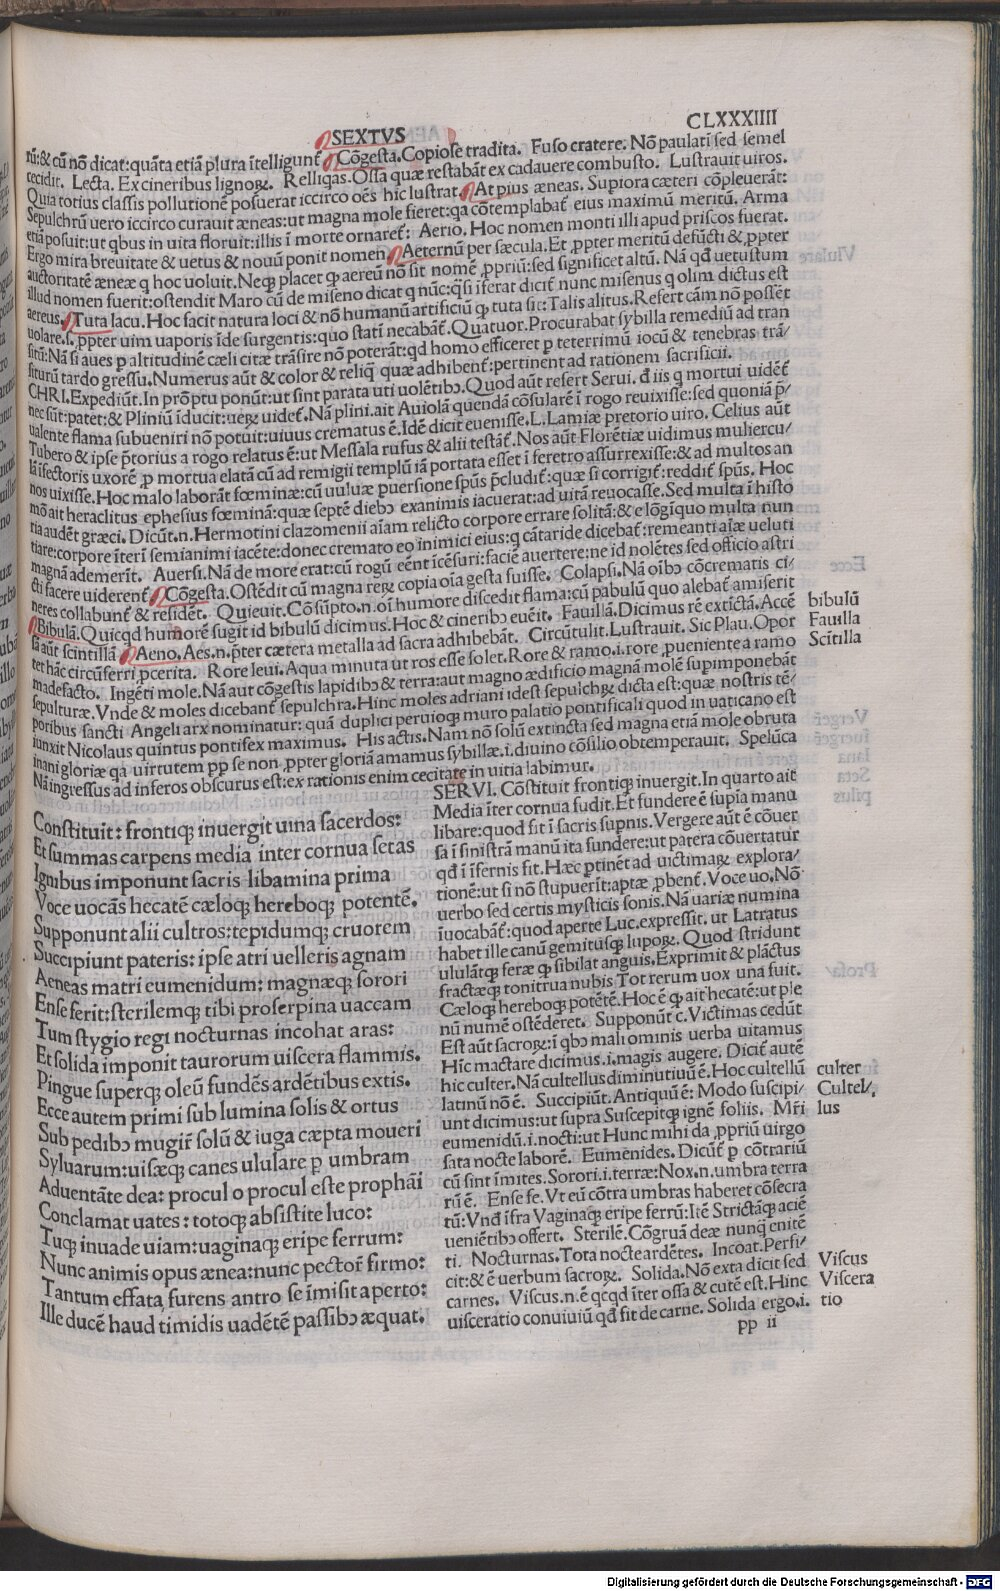 SEXTVS
CLXXXIIII
rū:& cū nō dicat:quāta etiā plura ītelligunt̄ Cōgesta.Copiose tradita. Fuso cratere. Nō paulatī sed semel
cecidit. Lecta. Ex cineribus lignoꝝ. Relliqas.Ossa quæ restabāt ex cadauere combusto. Lustrauit uiros.
Quia totius classis pollutionē posuerat iccirco oēs hic lustrat. At pius æneas. Supiora cæteri cōpleuerāt:
Sepulchrū uero iccirco curauit æneas:ut magna mole fieret:qa cōtemplabat̄ eius maximū meritū. Arma
etiā posuit:ut qbus in uita floruit:illis ī morte ornaret̄: Aerio. Hoc nomen monti illi apud priscos fuerat.
Ergo mira breuitate & uetus & nouū ponit nomen Aeternū per sæcula.Et ꝓpter meritū defūcti & ꝓpter
auctoritatē æneæ q hoc uoluit.Neqꝫ placet ꝙ aereū nō sit nomē ꝓpriū:sed significet altū. Nā qđ uetustum
illud nomen fuerit:ostendit Maro cū de miseno dicat q nūc:qsi īferat dicit̄ nunc misenus q olim dictus est
aereus. Tuta lacu. Hoc facit natura loci & nō humanū artificiū ꝙ tuta sit:Talis alitus.Refert cām nō possēt
uolare.s.ꝓpter uim uaporis īde surgentis:quo statī necabāt̄.Quatuor.Procurabat sybilla remediū ad tran
sitū:Nā si aues ꝑ altitudinē cæli citæ trāsire nō poterāt:qđ homo efficeret ꝑ teterrimū iocū & tenebras trā/
siturū tardo gressu.Numerus aūt & color & reliq quæ adhibent̄:pertinent ad rationem sacrificii.
CHRI.Expediūt.In prōptu ponūt:ut sint parata uti uolētibꝫ.Quod aūt refert Serui. đ iis q mortui uidēt̄
nec sūt:patet:& Pliniū īducit:ueꝝ uidet̄.Nā plini.ait Auiolā quendā cōsularē ī rogo reuixisse:sed quoniā p̄/
ualente flama subueniri nō potuit:uiuus crematus ē.Idē dicit euenisse.L.Lamiæ pretorio uiro. Celius aūt
Tubero & ipse p̄torius a rogo relatus ē:ut Messala rufus & alii testāt̄.Nos aūt Florētiæ uidimus muliercu/
lā īfectoris uxorē ꝓ mortua elatā cū ad remigii templū iā portata esset ī feretro assurrexisse:& ad multos an
nos uixisse.Hoc malo laborāt fœminæ:cū uuluæ puersione spūs p̄cludit̄:quæ si corrigit̄:reddit̄ spūs. Hoc
mō ait heraclitus ephesius fœminā:quæ septē diebꝫ exanimis iacuerat:ad uitā reuocasse.Sed multa ī histo
ria audēt græci. Dicūt.n.Hermotini clazomenii aīam relicto corpore errare solitā:& e lōgīquo multa nun
tiare:corpore īterī semianimi iacēte:donec cremato eo inimici eius:q cātaride dicebāt̄:remeanti aīæ ueluti
magnā ademerīt. Auersi.Nā de more erat:cū rogū eēnt īcēsuri:faciē auertere:ne id nolētes sed officio astri
cti facere uiderent̄ Cōgesta.Ostēdit cū magna reꝝ copia oīa gesta fuisse. Colapsi.Nā oībꝫ cōcrematis ci/
neres collabunt̄ & residēt. Quieuit.Cōsūpto.n.oī humore discedit flama:cū pabulū quo alebat̄ amiserit
Bibulā.Quicqđ humorē sugit id bibulū dicimus.Hoc & cineribꝫ euēit. Fauillā.Dicimus rē extīctā.Accē
sā aūt scintillā Aeno.Aes.n.p̄ter cætera metalla ad sacra adhibebāt. Circūtulit.Lustrauit. Sic Plau.Opor
tet hāc circūferri ꝓcerita. Rore leui.Aqua minuta ut ros esse solet.Rore & ramo.i.rore ꝓueniente a ramo
madefacto. Ingēti mole.Nā aut cōgestis lapidibꝫ & terra:aut magno ædificio magnā molē supimponebāt
sepulturæ.Vnde & moles dicebant̄ sepulchra.Hinc moles adriani idest sepulchꝝ dicta est:quæ nostris tē/
poribus sancti Angeli arx nominatur: quā duplici peruioqꝫ muro palatio pontificali quod in uaticano est
iunxit Nicolaus quintus pontifex maximus. His actis.Nam nō solū extincta sed magna etiā mole obruta
inani gloriæ qa uirtutem pp se non ꝓpter gloriā amamus sybillæ.i.diuino cōsilio obtemperauit. Spelūca
Nā ingressus ad inferos obscurus est:ex rationis enim cecitate in uitia labimur.
bibulū
Fauilla
Scītilla
Constituit: frontiqꝫ inuergit uina sacerdos:
Et summas carpens media inter cornua setas
Ignibus imponunt sacris libamina prima
Voce uocās hecatē cæloqꝫ hereboqꝫ potentē.
Supponunt alii cultros:tepidumqꝫ cruorem
Succipiunt pateris: ipse atri uelleris agnam
Aeneas matri eumenidum: magnæqꝫ sorori
Ense ferit:sterilemqꝫ tibi proserpina uaccam
Tum stygio regi nocturnas incohat aras:
Et solida imponit taurorum uiscera flammis.
Pingue superqꝫ oleū fundēs ardētibus extis.
Ecce autem primi sub lumina solis & ortus
Sub pedibꝫ mugir̄ solū & iuga cæpta moueri
Syluarum:uisæqꝫ canes ululare ꝑ umbram
Aduentāte dea: procul o procul este prophāi
Conclamat uates: totoqꝫ absistite luco:
Tuqꝫ inuade uiam:uaginaqꝫ eripe ferrum:
Nunc animis opus ænea:nunc pector̄ firmo:
Tantum effata furens antro se īmisit aperto:
Ille ducē haud timidis uadētē passibꝫ æquat.
SERVI. Cōstituit frontiqꝫ inuergit.In quarto ait
Media īter cornua fudit.Et fundere ē supīa manu
libare:quod fit ī sacris supnis.Vergere aūt ē cōuer
sa ī sinistrā manū ita fundere:ut patera cōuertatur
qđ ī īfernis fit.Hæc ꝑtinēt ad uictimaꝝ explora/
tionē:ut si nō stupuerīt:aptæ ꝓbent̄.Voce uo.Nō
uerbo sed certis mysticis sonis.Nā uariæ numina
īuocabāt̄:quod aperte Luc.expressit. ut Latratus
habet ille canū gemitusqꝫ lupoꝝ. Quod stridunt
ululātqꝫ feræ ꝙ sibilat anguis.Exprimit & plāctus
fractæqꝫ tonitrua nubis Tot rerum uox una fuit.
Cæloqꝫ hereboqꝫ potētē.Hoc ē ꝙ ait hecatē:ut ple
nū numē ostēderet. Supponūt c.Victimas cedūt
Est aūt sacroꝝ:ī qbꝫ mali ominis uerba uitamus
Hic mactare dicimus.i.magis augere. Dicit̄ autē
hic culter.Nā cultellus diminutiuū ē.Hoc cultellū
latinū nō ē. Succipiūt.Antiquū ē: Modo suscipi/
unt dicimus:ut supra Suscepitqꝫ ignē foliis. Mr̄i
eumenidū.i.nocti:ut Hunc mihi da ꝓpriū uirgo
sata nocte laborē. Eumenides. Dicūt̄ ꝑ cōtrariū
cū sint īmites.Sorori.i.terræ:Nox.n.umbra terra
rū ē. Ense fe.Vt eū cōtra umbras haberet cōsecra
tū:Vnđ īfra Vaginaqꝫ eripe ferrū:Itē Strictāqꝫ aciē
ueniētibꝫ offert. Sterilē.Cōgruā deæ nunqꝫ enitē
ti. Nocturnas.Tota nocte ardētes. Incoat.Perfi/
cit:& ē uerbum sacroꝝ. Solida.Nō exta dicit sed
carnes. Viscus.n.ē qcqđ īter ossa & cutē est.Hinc
uisceratio conuiuiū qđ fit de carne. Solida ergo.i.
culter
Cultel/
lus
Viscus
Viscera
tio
pp ii
Digitalisierung gefördert durch die Deutsche Forschungsgemeinschaft - DFG